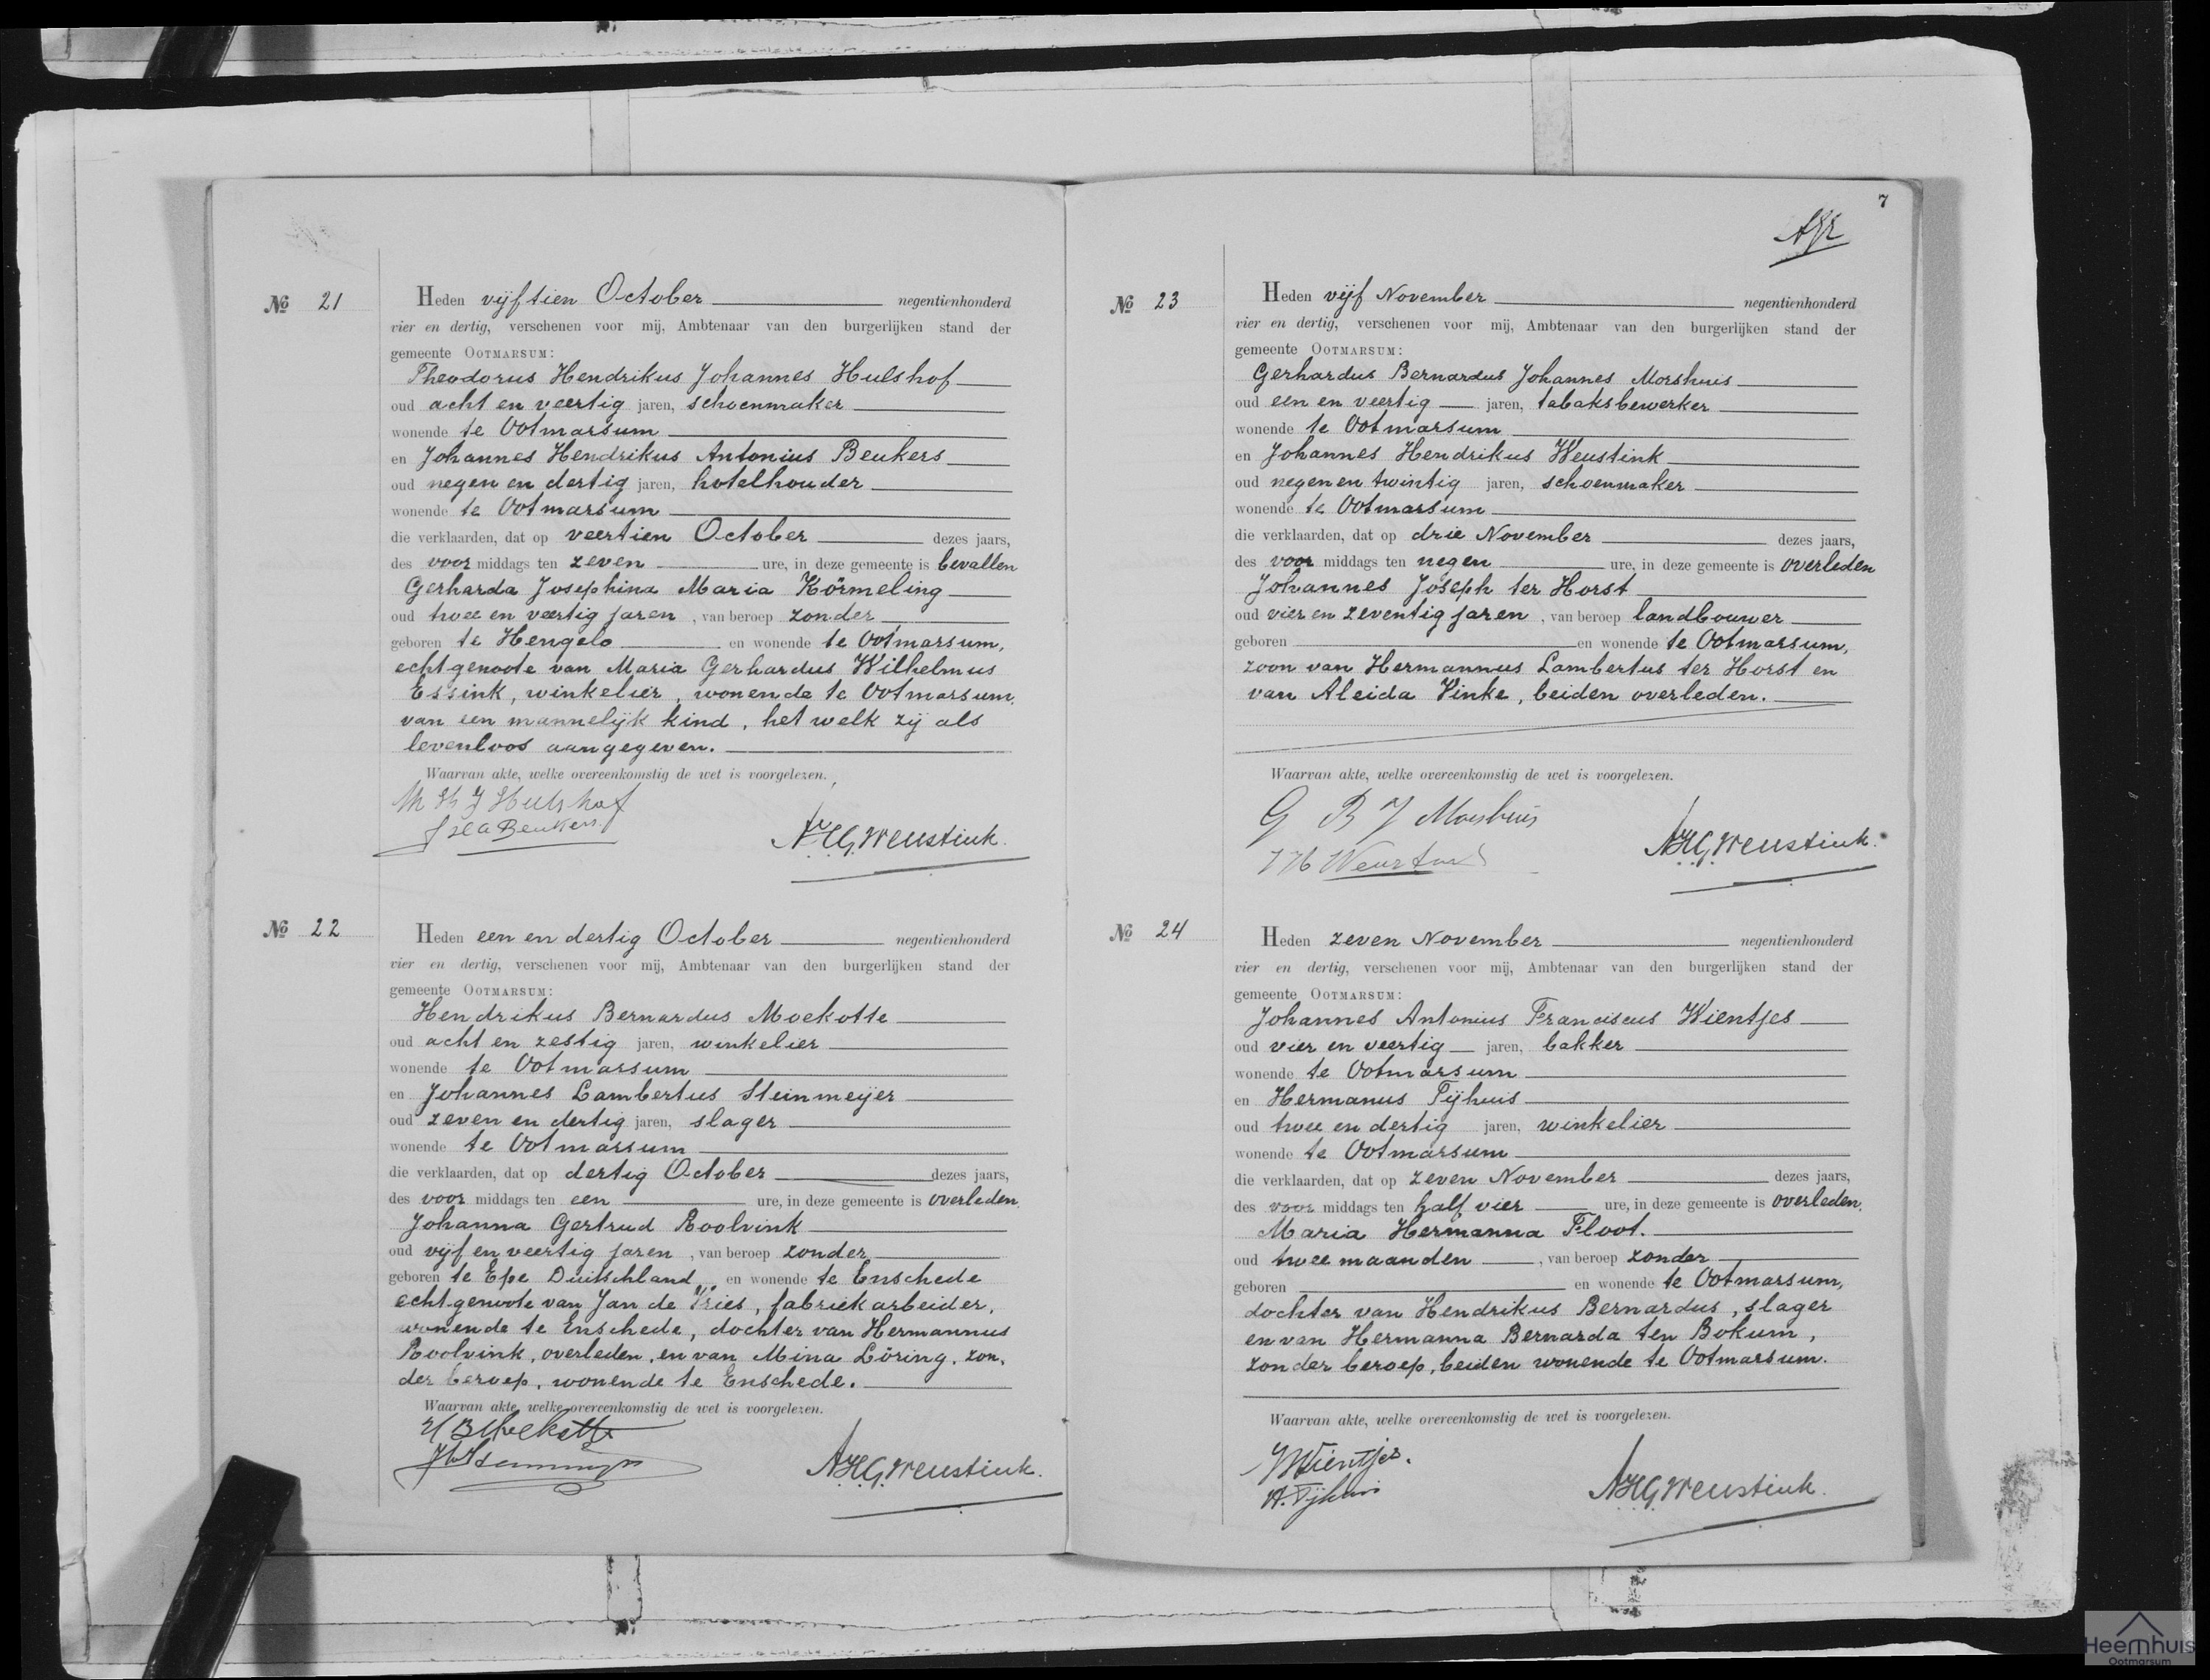 № 21
Heden vijftien October negentienhonderd
vier en dertig, verschenen voor mij, Ambtenaar van den burgerlijken stand der
gemeente OOTMARSUM:
Theodorus Hendrikus Johannes Hulshof
oud acht en veertig jaren, schoenmaker
wonende te Ootmarsum
en Johannes Hendrikus Antonius Beukers
oud negen en dertig jaren, hotelhouder
wonende te Ootmarsum
die verklaarden, dat op veertien October dezes jaars,
des voor middags ten zeven ure, in deze gemeente is bevallen
Gerharda Josephina Maria Körmeling
oud twee en veertig jaren, van beroep zonder
geboren te Hengelo en wonende te Ootmarsum,
echtgenoote van Maria Gerhardus Wilhelmus
Essink, winkelier, wonende te Ootmarsum,
van een mannelijk kind, het welk zij als
levenloos aangegeven.
Waarvan akte, welke overeenkomstig de wet is voorgelezen.
Th H J Hulshof
J H A Beukers
A.H.G. Weustink.
№ 22
Heden een en dertig October negentienhonderd
vier en dertig, verschenen voor mij, Ambtenaar van den burgerlijken stand der
gemeente OOTMARSUM:
Hendrikus Bernardus Moekotte
oud acht en zestig jaren, winkelier
wonende te Ootmarsum
en Johannes Lambertus Steinmeijer
oud zeven en dertig jaren, slager
wonende te Ootmarsum
die verklaarden, dat op dertig October dezes jaars,
des voor middags ten een ure, in deze gemeente is overleden.
Johanna Gertrud Roolvink
oud vijf en veertig jaren, van beroep zonder
geboren te Epe Duitschland, en wonende te Enschede
echtgenoote van Jan de Vries, fabriekarbeider,
wonende te Enschede, dochter van Hermannus
Roolvink, overleden, en van Mina Löring, zon-
der beroep, wonende te Enschede.
Waarvan akte, welke overeenkomstig de wet is voorgelezen.
H B Moekotte
A.H.G. Weustink.
7
№ 23
Heden vijf November negentienhonderd
vier en dertig, verschenen voor mij, Ambtenaar van den burgerlijken stand der
gemeente OOTMARSUM:
Gerhardus Bernardus Johannes Morshuis
oud een en veertig jaren, tabaksbewerker
wonende te Ootmarsum
en Johannes Hendrikus Weustink
oud negen en twintig jaren, schoenmaker
wonende te Ootmarsum
die verklaarden, dat op drie November dezes jaars,
des voor middags ten negen ure, in deze gemeente is overleden
Johannes Joseph ter Horst
oud vier en zeventig jaren, van beroep landbouwer
geboren en wonende te Ootmarsum,
zoon van Hermannus Lambertus ter Horst en
van Aleida Vinke, beiden overleden.
Waarvan akte, welke overeenkomstig de wet is voorgelezen.
G B J Morshuis
J H Weustink
A.H.G. Weustink.
№ 24
Heden zeven November negentienhonderd
vier en dertig, verschenen voor mij, Ambtenaar van den burgerlijken stand der
gemeente OOTMARSUM:
Johannes Antonius Franciscus Wientjes
oud vier en veertig jaren, bakker
wonende te Ootmarsum
en Hermanus Tijhuis
oud twee en dertig jaren, winkelier
wonende te Ootmarsum
die verklaarden, dat op zeven November dezes jaars,
des voor middags ten half vier ure, in deze gemeente is overleden.
Maria Hermanna Floot.
oud twee maanden, van beroep zonder
geboren en wonende te Ootmarsum,
dochter van Hendrikus Bernardus, slager
en van Hermanna Bernarda ten Bokum,
zonder beroep, beiden wonende te Ootmarsum.
Waarvan akte, welke overeenkomstig de wet is voorgelezen.
Wientjes.
H. Tijhuis
A.H.G. Weustink.
Heemhuis
Ootmarsum